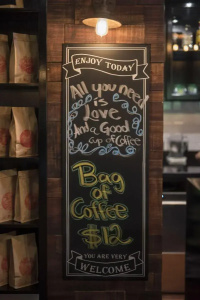 ENJOY TODAY
All you need
is
Love
And a Good
Cup of Coffee
Bag
of
Coffee
$12
YOU ARE VERY
WELCOME